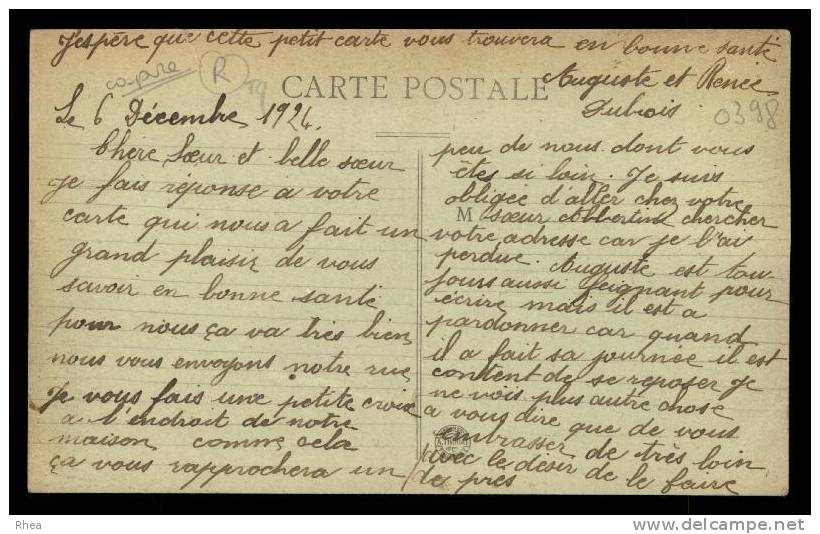 J'espère que cette petit carte vous trouvera en bonne santé
Auguste et Renée
Dubois
CARTE POSTALE
R
0398
Le 6 Décembre 1924.
Chère Sœur et belle sœur
je fais réponse a votre
carte qui nous a fait un
grand plaisir de vous
savoir en bonne santé
pour nous ça va très bien
nous vous envoyons notre rue
Je vous fais une petite croix
a l'endroit de notre
maison comme cela
ça vous rapprochera un
peu de nous dont vous
êtes si loin. Je suis
obligée d'aller chez votre
M
sœur Albertine chercher
votre adresse car je l'ai
perdue. Auguste est tou-
jours aussi feignant pour
écrire mais il est a
pardonner car quand
il a fait sa journée il est
content de se reposer je
ne vois plus autre chose
a vous dire que de vous
embrasser de très loin
avec le désir de le faire
de près
Rhea
www.delcampe.net